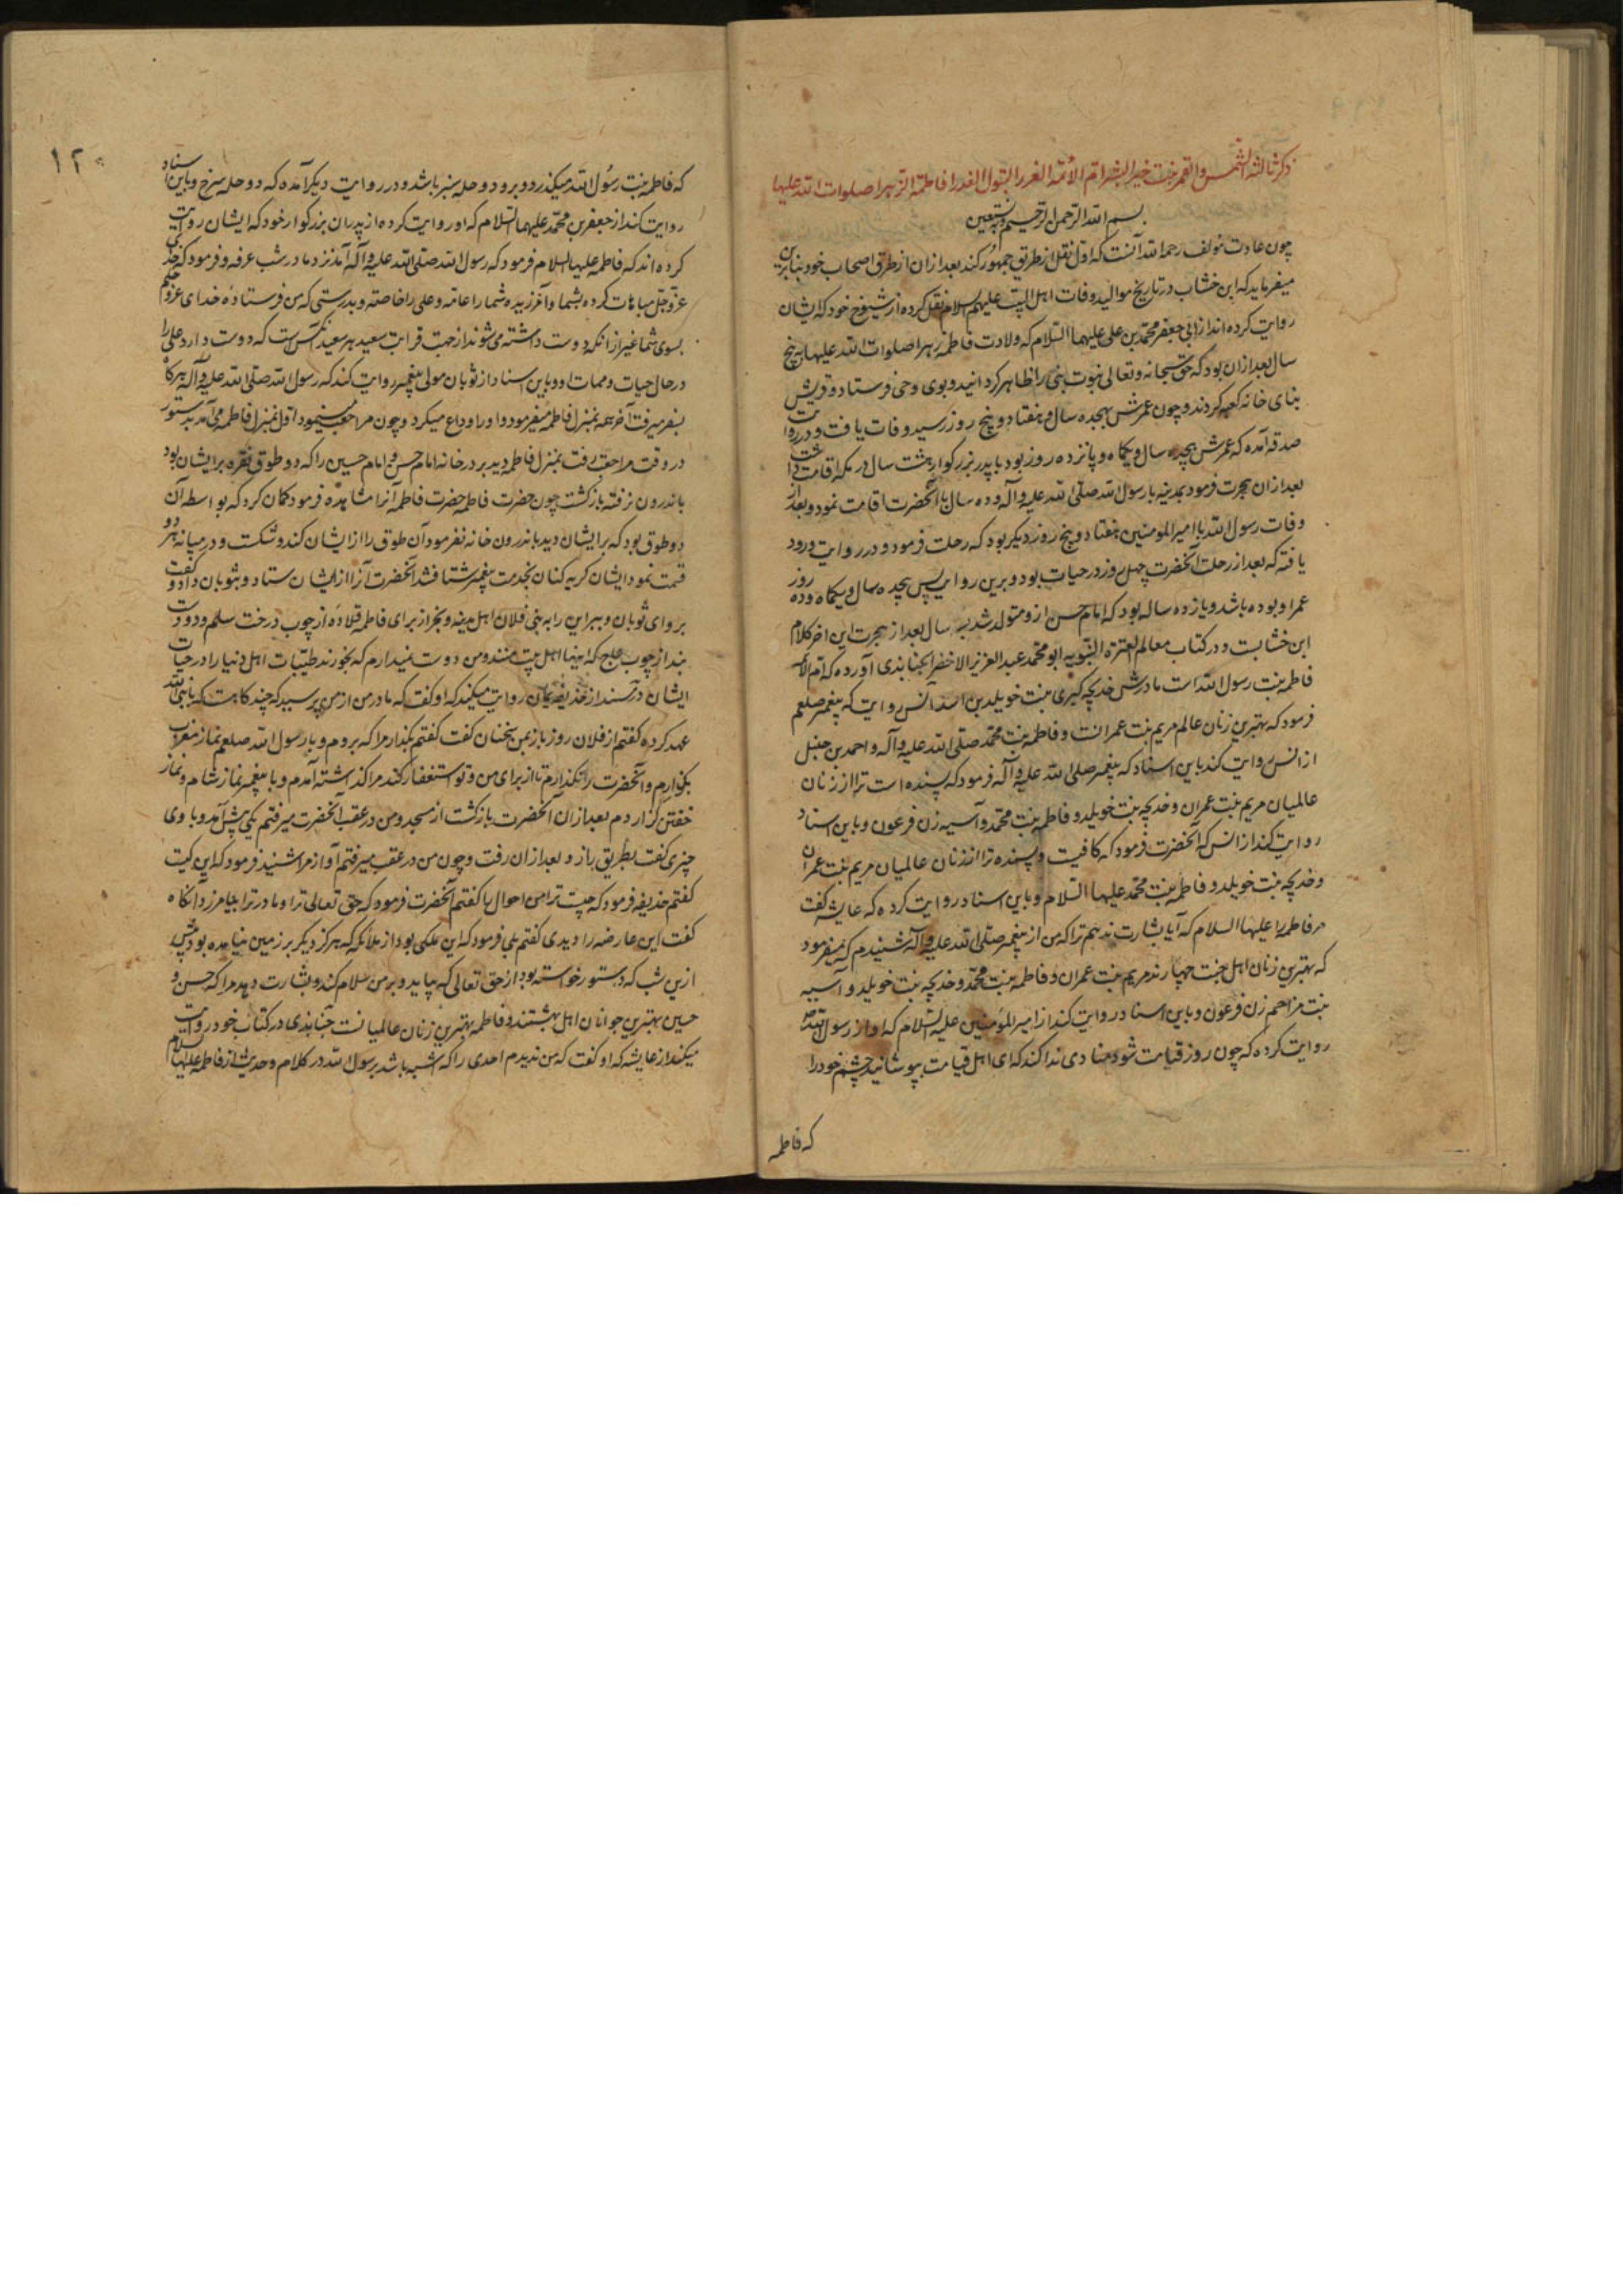 ذکر ثالثة الشمس والقمر بنت خیر البشر ام الائمة الغرر البتول العذرا فاطمة الزهرا صلوات الله علیها
بسم الله الرحمن الرحیم وبه نستعین
چون عادت مولف رحمه الله آنست که اول نقل از طریق جمهور کند بعد ازان از طرق اصحاب خود بنابرین
میفرماید که ابن خشاب در تاریخ موالید وفات اهل البیت علیهم السلام نقل کرده از شیوخ خود که ایشان
روایت کرده اند از ابی جعفر محمد بن علی علیهما السلام که ولادت فاطمه زهرا صلوات الله علیها به پنج
سال بعد ازان بود که حق سبحانه وتعالی نبوت نبی را ظاهر کردانید وبوی وحی فرستاد و قریش
بنای خانه کعبه کردند و چون عمرش بهجده سال و هفتاد و پنج روز رسید وفات یافت و در روایت
صدقه آمده که عمرش هجده سال و یکماه و پانزده روز بود با پدر بزرکوار هشت سال در مکه اقامت داشت
بعد ازان هجرت فرمود بمدینه با رسول الله صلی الله علیه وآله و ده سال با آنحضرت اقامت نمود و بعد از
وفات رسول الله با امیر المومنین هفتاد و پنج روز دیکر بود که رحلت فرمود و در روایت ورود
یافته که بعد از رحلت آنحضرت چهل روز در حیات بود و برین روایت پس هجده سال و یکماه و ده روز
عمر او بوده باشد و یازده ساله بود که امام حسن ازو متولد شد سه سال بعد از هجرت این اخر کلام
ابن خشابست و در کتاب معالم العترة النبویه ابو محمد عبد العزیز الاخضر الجنابذی آورده که ام الائمه
فاطمه بنت رسول الله است مادرش خدیجه کبری بنت خویلد بن اسد انس روایت که پیغمبر صلعم
فرمود که بهترین زنان عالم مریم بنت عمرانست و فاطمه بنت محمد صلی الله علیه وآله و احمد بن حنبل
از انس روایت کند باین اسناد که پیغمبر صلی الله علیه وآله فرمود که پسنده است ترا از زنان
عالمیان مریم بنت عمران و خدیجه بنت خویلد و فاطمه بنت محمد و آسیه زن فرعون و باین اسناد
روایت کند از انس که آنحضرت فرمود که کافیست و پسنده ترا از زنان عالمیان مریم بنت عمران
و خدیجه بنت خویلد و فاطمه بنت محمد علیها السلام و باین اسناد روایت کرده که عایشه کفت
مر فاطمه را علیها السلام که آیا بشارت ندهم ترا که من از پیغمبر صلی الله علیه وآله شنیدم که میفرمود
که بهترین زنان اهل جنت چهارند مریم بنت عمران و فاطمه بنت محمد و خدیجه بنت خویلد و آسیه
بنت مزاحم زن فرعون و باین اسناد روایت کند از امیر المؤمنین علیه السلام که او از رسول الله
روایت کرده که چون روز قیامت شود منادی ندا کند که ای اهل قیامت بپوشانید چشم خود را
که فاطمه
۱۲۰
که فاطمه بنت رسول الله میکذرد و برو دو حله سبز باشد و در روایت دیکر آمده که دو حله سرخ و باین اسناد
روایت کند از جعفر بن محمد علیهما السلام که او روایت کرده از پدران بزرکوار خود که ایشان روایت
کرده اند که فاطمه علیها السلام فرمود که رسول الله صلی الله علیه وآله آمد نزد ما در شب عرفه و فرمود که خدای
عز وجل مباهات کرده بشما و آمرزیده شما را عامه و علی را خاصه و بدرستی که من فرستاده خدای عز وجلم
بسوی شما غیر از آنکه دوست داشته می شوند از جهت قرابت سعید هر سعید آنکس است که دوست دارد علی را
در حال حیات و ممات او و باین اسناد از ثوبان مولی پیغمبر روایت کند که رسول الله صلی الله علیه وآله هر کاه
بسفر میرفت آخر همه بمنزل فاطمه میفرمود و او را وداع میکرد و چون مراجعت مینمود اول بمنزل فاطمه می آمد بدستور
در وقت مراجعت رفت بمنزل فاطمه دید بر در خانه امام حسن و امام حسین را که دو طوق نقره بر ایشان بود
باندرون نرفته بازکشت چون حضرت فاطمه آنرا مشاهده فرمود کمان کرد که بواسطه آن
دو طوق بود که بر ایشان دید باندرون خانه نفرمود آن طوق را از ایشان کند و شکست و در میانه هر دو
قسمت نمود ایشان کریه کنان بخدمت پیغمبر شتافتند آنحضرت آنرا از ایشان ستاد و بثوبان داد و کفت
برو ای ثوبان و ببر این را به بنی فلان اهل مدینه و بخر از برای فاطمه قلاده از چوب درخت سلم و دو دست
بند از چوب عاج که اینها اهل بیت منند و من دوست نمیدارم که بخورند طیبات اهل دنیا را در حیات
ایشان در مسند از حذیفه یمان روایت میکند که او کفت که مادر من از من پرسید که چند کاهست که با نبی الله
عهد کرده کفتم از فلان روز باز بمن سخنان کفت کفتم بکذار مرا که بروم و با رسول الله صلعم نماز مغرب
بکزارم و آنحضرت را نکذارم تا از برای من و تو استغفار کند مرا کذاشته آمدم و با پیغمبر نماز شام و نماز
خفتن کزاردم بعد ازان آنحضرت بازکشت از مسجد و من در عقب آنحضرت میرفتم یکی پیش آمد و با وی
چیزی کفت بطریق راز و بعد ازان رفت و چون من در عقب میرفتم آواز مرا شنید فرمود که این کیست
کفتم حذیفه فرمود که چیست ترا من احوال با کفتم آنحضرت فرمود که حق تعالی ترا و مادر ترا بیامرزد آنکاه
کفت این عارضه را دیدی کفتم بلی فرمود که این ملکی بود از ملائکه که هرکز دیکر بر زمین نیامده بود پیش
ازین شب که دستور خواسته بود از حق تعالی که بیاید و بر من سلام کند و بشارت دهد مرا که حسن و
حسین بهترین جوانان اهل بهشتند و فاطمه بهترین زنان عالمیانست جنابذی در کتاب خود روایت
میکند از عایشه که او کفت که من ندیدم احدی را که اشبه باشد برسول الله در کلام و حدیث از فاطمه علیها السلام